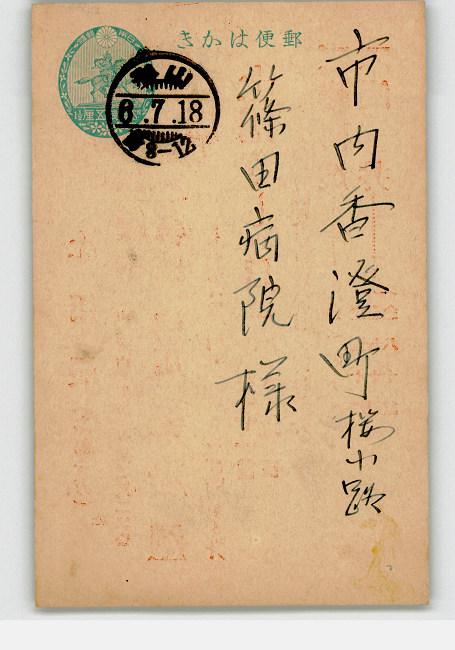 きかは便郵
市内香澄町桜小路
篠田病院様
6.7.18
8-12